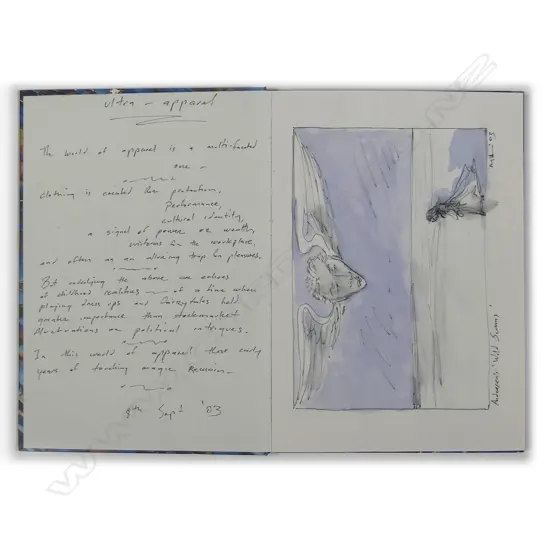 ultra - apparel
The world of apparel is a multi-faceted
one -
clothing is created for protection,
performance,
cultural identity,
a signal of power or wealth,
uniforms for the workplace,
and often as an alluring trap for pleasures.
But underlying the above are echoes
of childhood realities — of a time when
playing dress ups and fairytales held
greater importance than stockmarket
fluctuations or political intrigues.
In this world of apparel those early
years of touching magic remain.
8th Sept '03
Andersen's 'Wild Swans'
'03